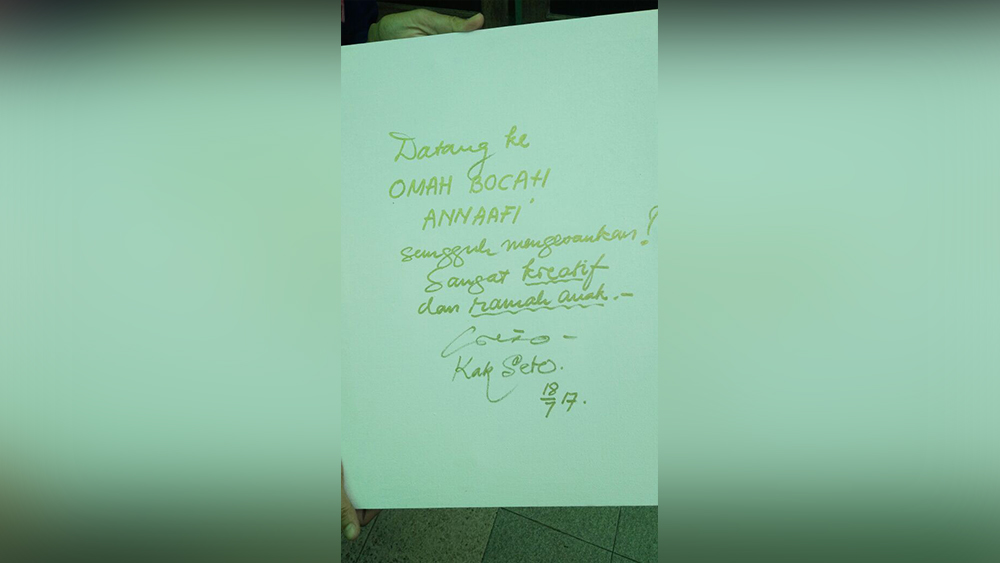 Datang ke
OMAH BOCAH
ANNAAFI'
sungguh mengesankan!
Sangat kreatif
dan ramah anak.-
Kak Seto.
18/7 17.